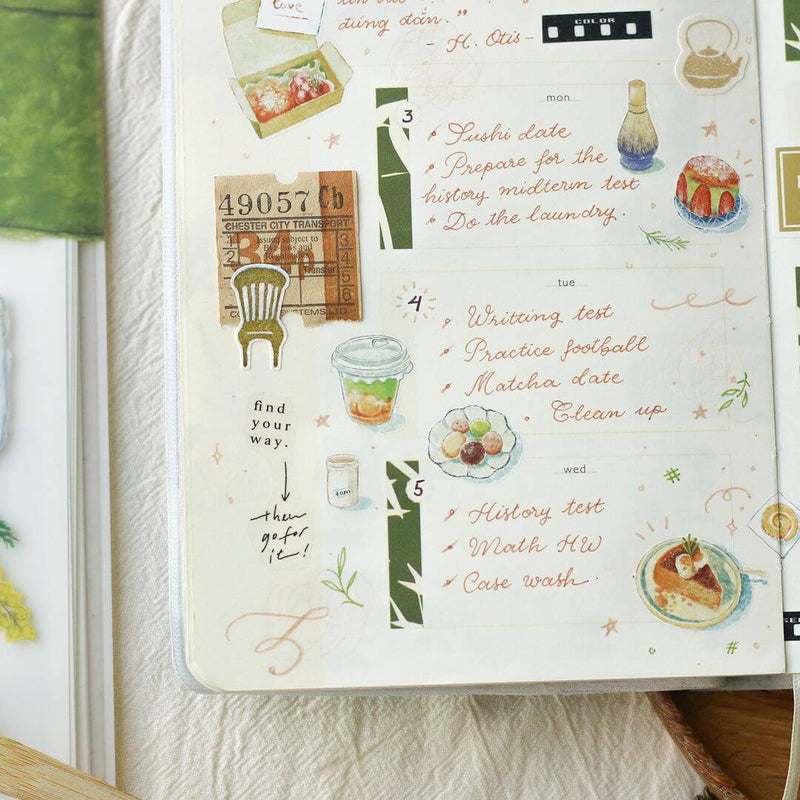 love
đúng đắn."
- H. Otis -
COLOR
mon
3
Sushi date
Prepare for the
history midterm test
Do the laundry.
49057 Cb
CHESTER CITY TRANSPORT
Issued subject to
Bye-laws and
Regulations
1
2
2
3
4
5
6
3
4p
Transfer
find
your
way.
then
go for
it!
tue
4
Writting test
Practice football
Matcha date
Clean up
wed
5
History test
Math HW
Case wash.
#
#